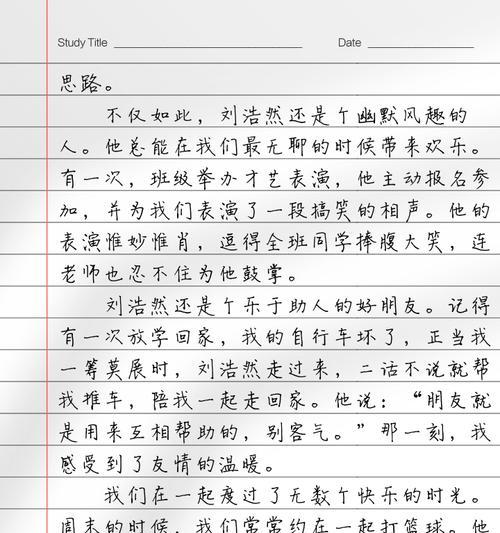 Study Title Date
思路。
不仅如此，刘浩然还是个幽默风趣的
人。他总能在我们最无聊的时候带来欢乐。
有一次，班级举办才艺表演，他主动报名参
加，并为我们表演了一段搞笑的相声。他的
表演惟妙惟肖，逗得全班同学捧腹大笑，连
老师也忍不住为他鼓掌。
刘浩然还是个乐于助人的好朋友。记得
有一次放学回家，我的自行车坏了，正当我
一筹莫展时，刘浩然走过来，二话不说就帮
我推车，陪我一起走回家。他说：“朋友就
是用来互相帮助的，别客气。”那一刻，我
感受到了友情的温暖。
我们在一起度过了无数个快乐的时光。
周末的时候，我们常常约在一起打篮球。他